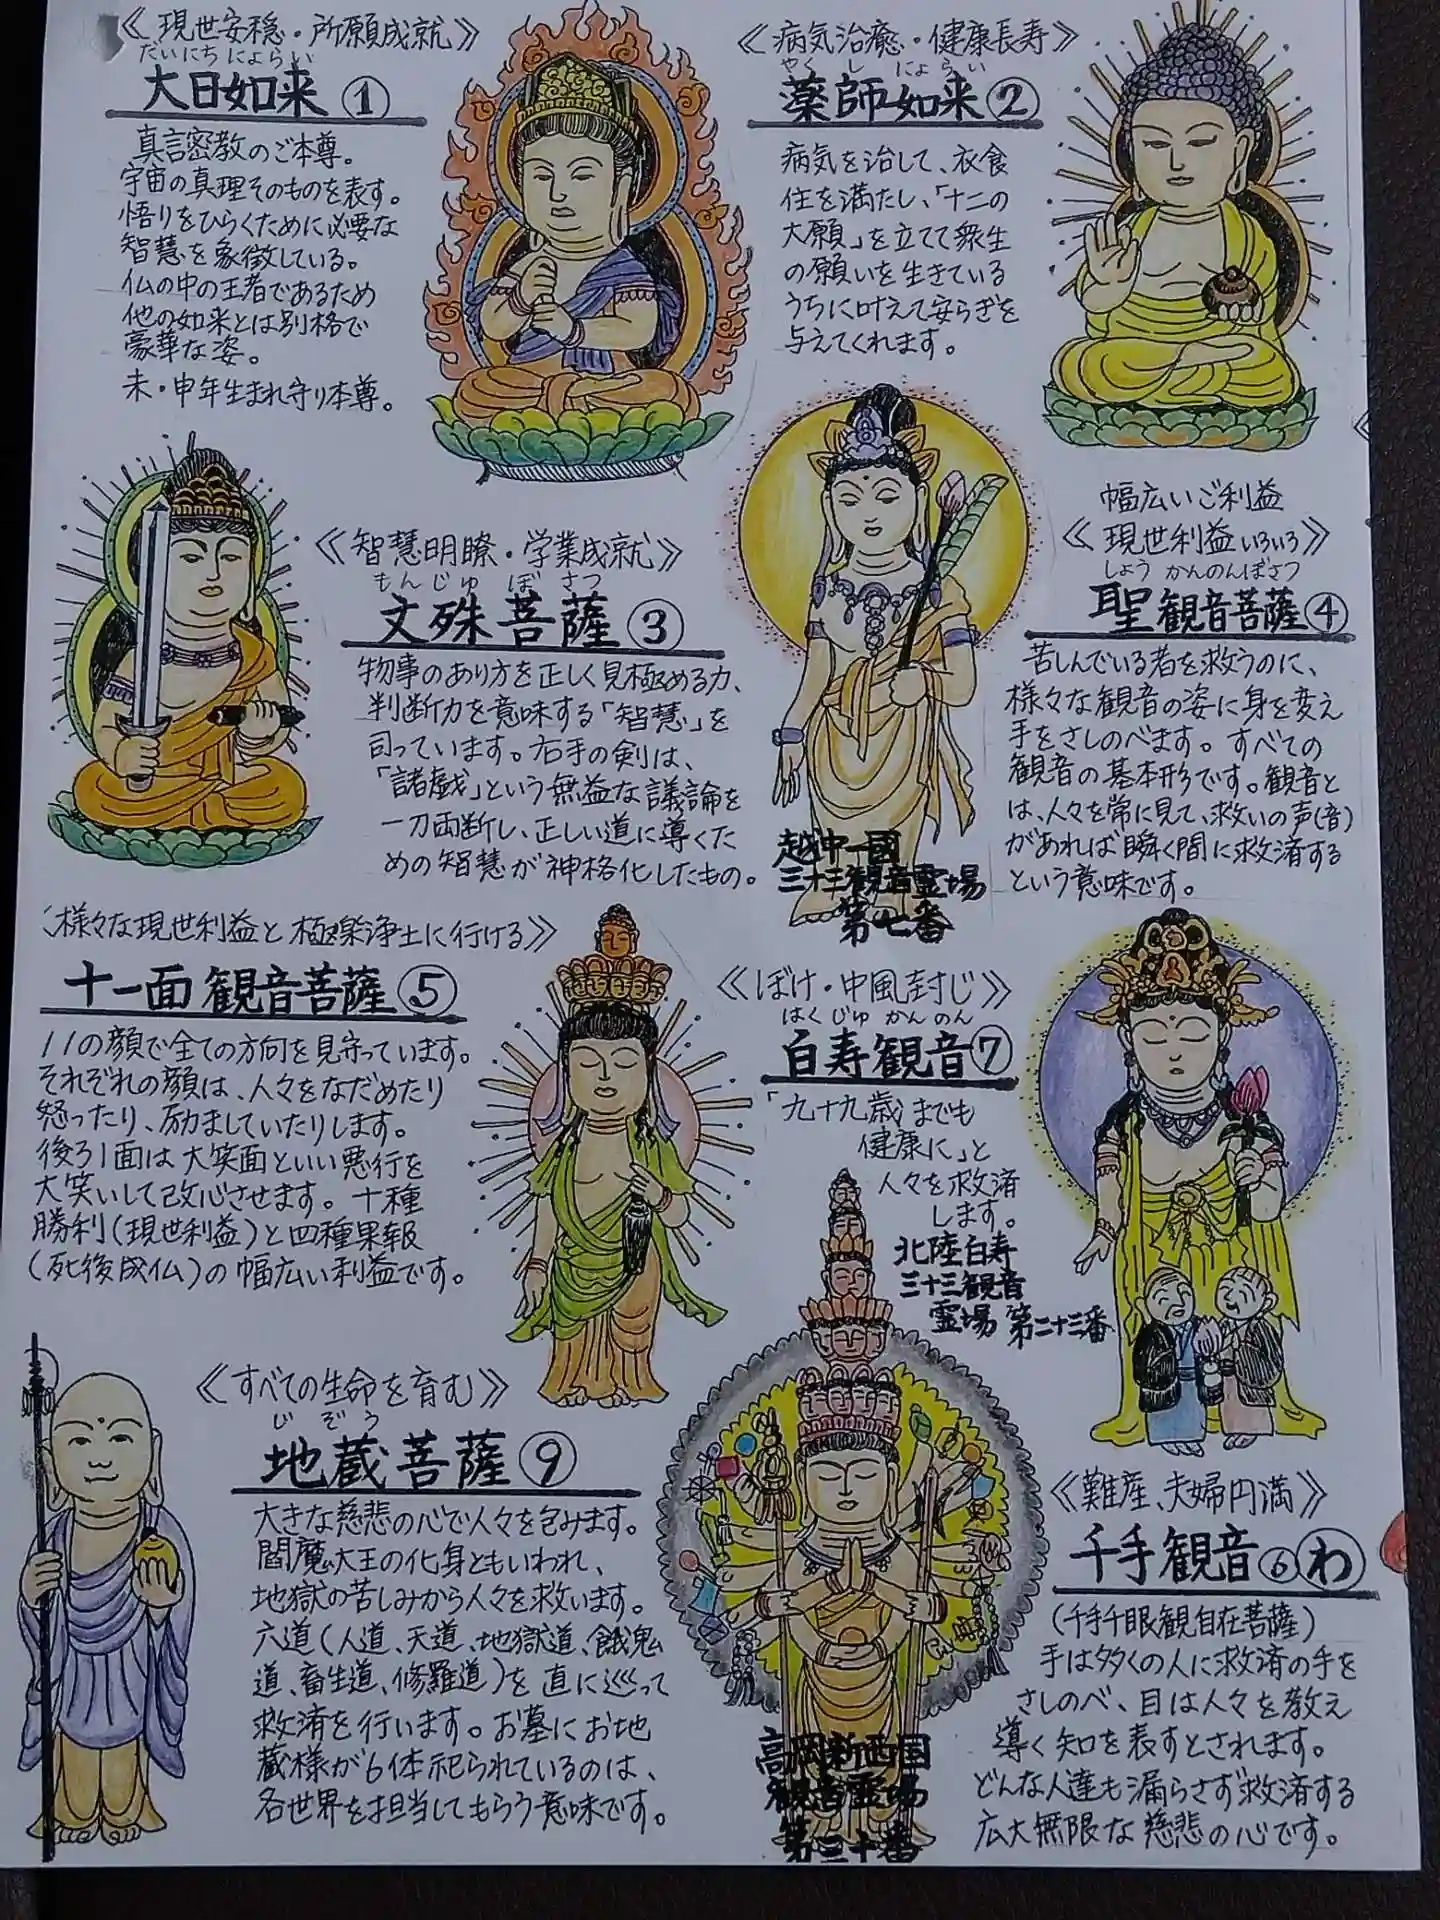 《現世安穏・所願成就》
だいにちにょらい
大日如来①
真言密教のご本尊。
宇宙の真理そのものを表す。
悟りをひらくために必要な
智慧を象徴している。
仏の中の王者であるため
他の如来とは別格で
豪華な姿。
未・申年生まれ守り本尊。
《病気治癒・健康長寿》
やくしにょらい
薬師如来②
病気を治して、衣食
住を満たし、「十二の
大願」を立てて衆生
の願いを生きている
うちに叶えて安らぎを
与えてくれます。
《智慧明瞭・学業成就》
もんじゅぼさつ
文殊菩薩③
物事のあり方を正しく見極める力、
判断力を意味する「智慧」を
司っています。右手の剣は、
「諸戯」という無益な議論を
一刀両断し、正しい道に導くた
めの智慧が神格化したもの。
幅広いご利益
《現世利益いろいろ》
しょうかんのんぼさつ
聖観音菩薩④
苦しんでいる者を救うのに、
様々な観音の姿に身を変え
手をさしのべます。すべての
観音の基本形です。観音と
は、人々を常に見て、救いの声(音)
があれば瞬く間に救済する
という意味です。
越中一國
三十三観音霊場
第七番
様々な現世利益と極楽浄土に行ける》
十一面観音菩薩⑤
11の顔で全ての方向を見守っています。
それぞれの顔は、人々をなだめたり
怒ったり、励ましていたりします。
後ろ1面は大笑面といい悪行を
大笑いして改心させます。十種
勝利(現世利益)と四種果報
(死後成仏)の幅広い利益です。
《ぼけ・中風封じ》
はくじゅかんのん
白寿観音⑦
「九十九歳までも
健康に」と
人々を救済
します。
北陸白寿
三十三観音
霊場 第二十三番
《すべての生命を育む》
じぞう
地蔵菩薩⑨
大きな慈悲の心で人々を包みます。
閻魔大王の化身ともいわれ、
地獄の苦しみから人々を救います。
六道(人道、天道、地獄道、餓鬼
道、畜生道、修羅道)を直に巡って
救済を行います。お墓にお地
蔵様が6体祀られているのは、
各世界を担当してもらう意味です。
《難産、夫婦円満》
千手観音⑥わ
(千手千眼観自在菩薩)
手は多くの人に救済の手を
さしのべ、目は人々を教え
導く知を表すとされます。
どんな人達も漏らさず救済する
広大無限な慈悲の心です。
高岡新西国
観音霊場
第三十番